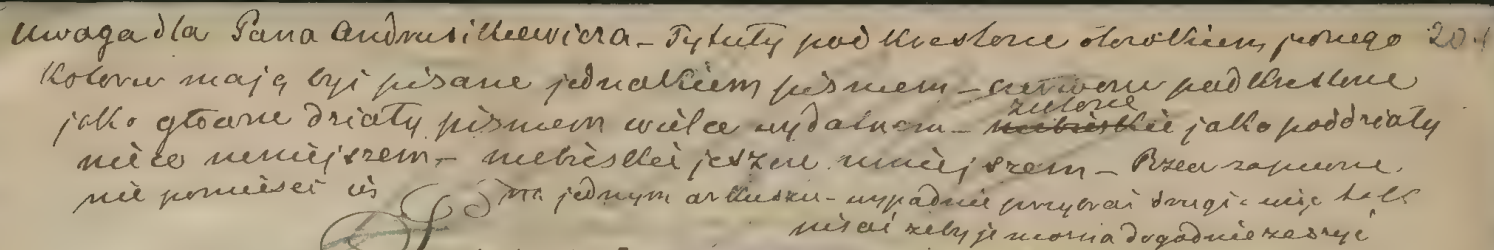 Uwaga dla Pana Andrusikiewicza – Tytuły podkreslone ołowkiem jednego 201
koloru mają być pisane jednakiem pismem – czerwono podkreslone
jako głowne działy pismem wielce wydatnem – niebieskie zielone jako poddziały
nieco mniejszem – niebieskie jeszcze mniejszem – Rzecz zapewne
nie pomieści się na jednym arkuszu – wypadnie przybrać drugi a więc tak
pisać zeby je mozna dogodnie zeszyć